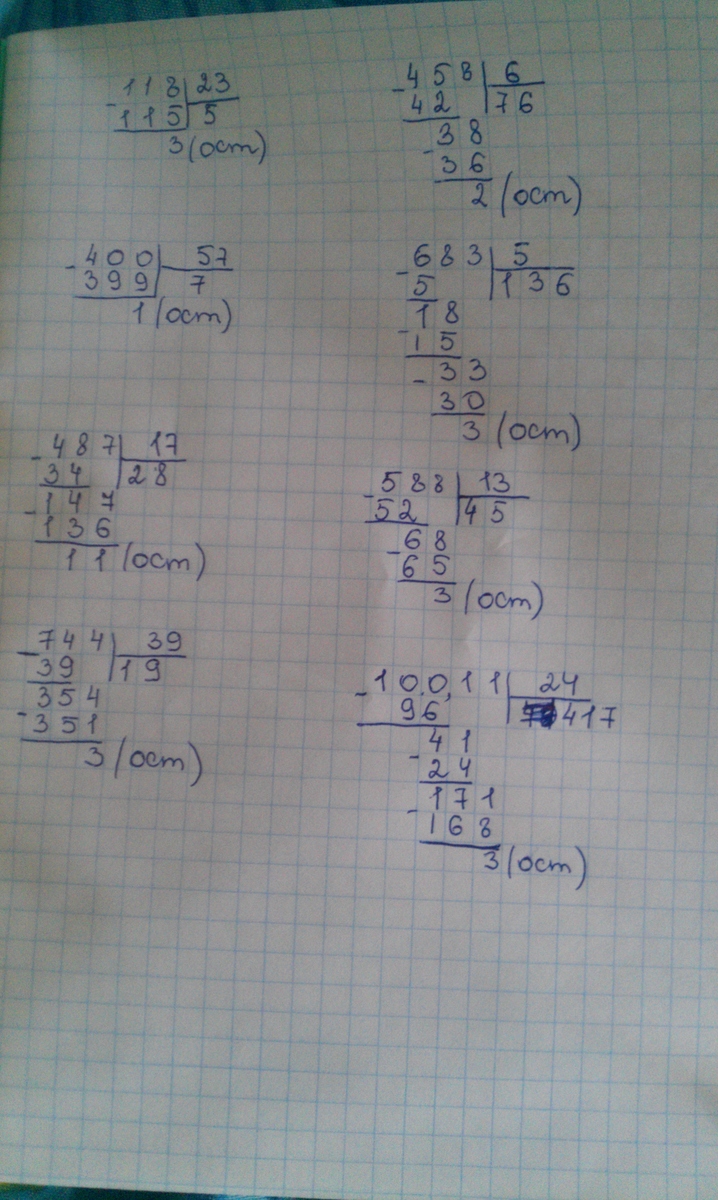 -118|23
115|5
3(ост)
-458|6
42|76
-38
36
2(ост)
-400|57
399|7
1(ост)
-683|5
5|136
-18
15
-33
30
3(ост)
-487|17
34|28
-147
136
11(ост)
-588|13
52|45
-68
65
3(ост)
-744|39
39|19
-354
351
3(ост)
-100,11|24
96|417
-41
24
-171
168
3(ост)